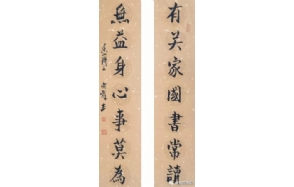 有关家國書常讀
無益身心事莫為